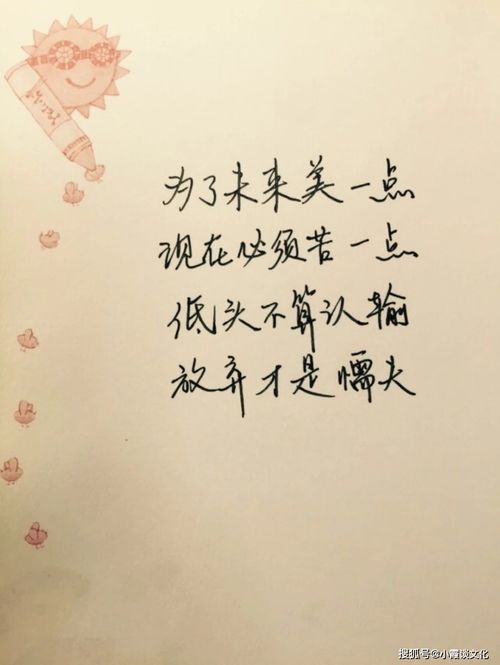 为了未来美一点
现在必须苦一点
低头不算认输
放弃才是懦夫
搜狐号@小霞谈文化